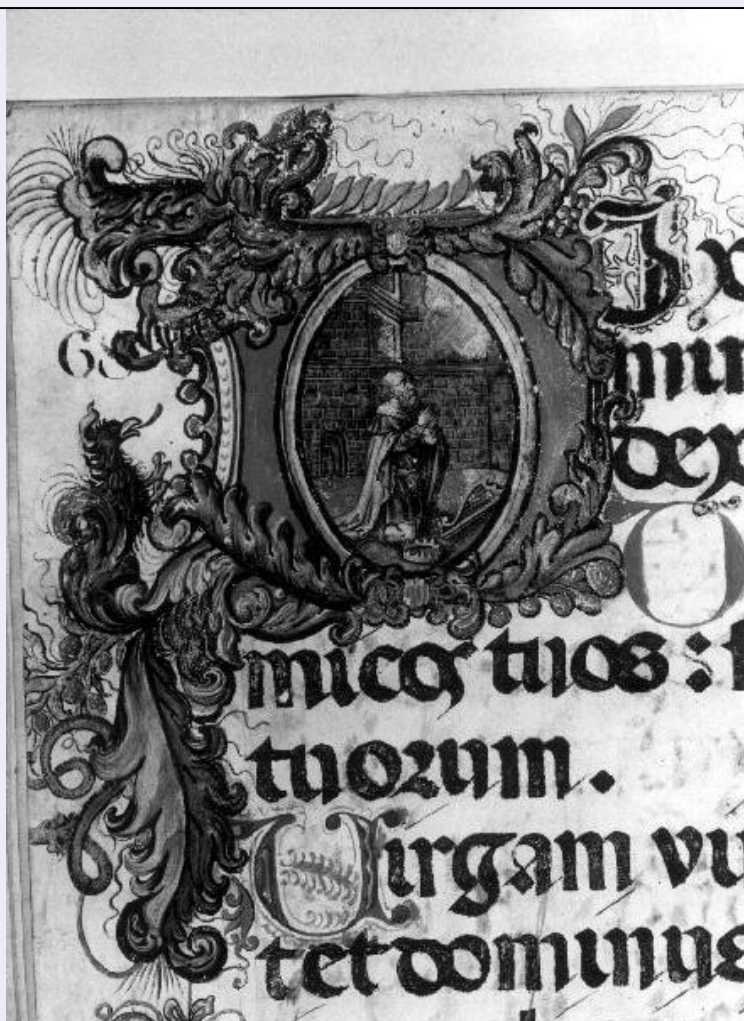 DIx
min
dex
D
micos tuos :
tuorum.
Uirgam vi
tet dominus